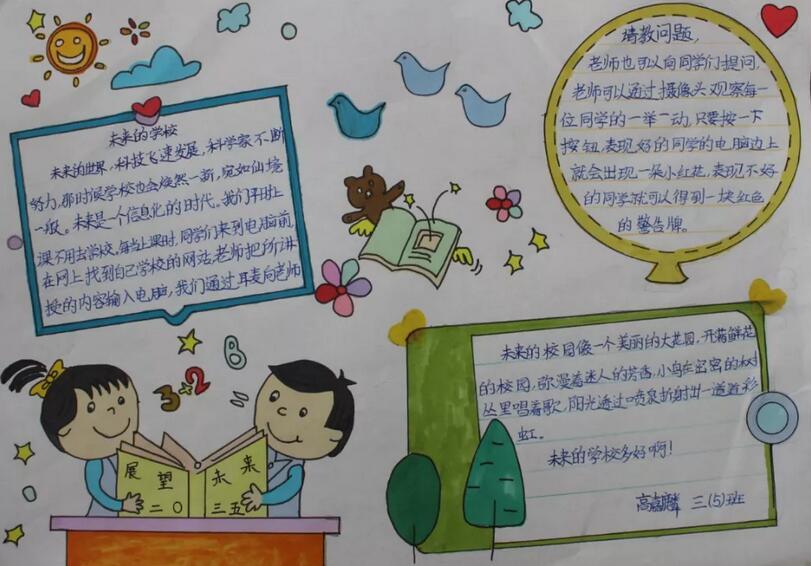 未来的学校
未来的世界,科技飞速发展,科学家不断
努力,那时候学校也会焕然一新,宛如仙境
一般。未来是一个信息化的时代。我们平时上
课不用去学校,每当上课时,同学们来到电脑前,
在网上找到自己学校的网站,老师把所讲
授的内容输入电脑,我们通过耳麦向老师
请教问题,
老师也可以向同学们提问,
老师可以通过摄像头观察每一
位同学的一举一动,只要按一下
按钮,表现好的同学的电脑边上
就会出现一朵小红花,表现不好
的同学就可以得到一块红色
的警告牌。
3+2
8
展望未来
二〇三五
未来的校园像一个美丽的大花园,开满鲜花
的校园,弥漫着迷人的芳香,小鸟在密密的树
丛里唱着歌,阳光透过喷泉折射出一道道彩
虹。
未来的学校多好啊!
高嘉麟 三(5)班